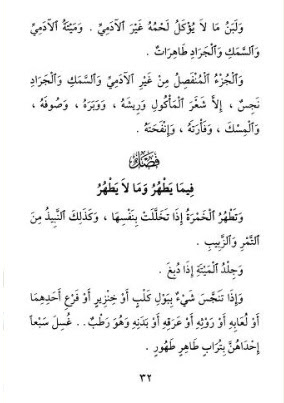 وَلَبَنُ مَا لَا يُؤْكَلُ لَحْمُهُ غَيْرَ ٱلْآدَمِيِّ . وَمَيْتَةُ ٱلْآدَمِيِّ
وَٱلسَّمَكِ وَٱلْجَرَادِ طَاهِرَاتٌ .
وَٱلْجُزْءُ ٱلْمُنْفَصِلُ مِنْ غَيْرِ ٱلْآدَمِيِّ وَٱلسَّمَكِ وَٱلْجَرَادِ
نَجِسٌ ، إِلَّا شَعْرَ ٱلْمَأْكُولِ وَرِيشَهُ ، وَوَبَرَهُ ، وَصُوفَهُ ،
وَٱلْمِسْكَ ، وَفَأْرَتَهُ ، وَإِنْفَحَتَهُ .
فَصْلٌ
فِيمَا يَطْهُرُ وَمَا لَا يَطْهُرُ
وَتَطْهُرُ ٱلْخَمْرَةُ إِذَا تَخَلَّلَتْ بِنَفْسِهَا ، وَكَذَلِكَ ٱلنَّبِيذُ مِنَ
ٱلتَّمْرِ وَٱلزَّبِيبِ .
وَجِلْدُ ٱلْمَيْتَةِ إِذَا دُبِغَ .
وَإِذَا تَنَجَّسَ شَيْءٌ بِبَوْلِ كَلْبٍ أَوْ خِنْزِيرٍ أَوْ فَرْعِ أَحَدِهِمَا
أَوْ لُعَابِهِ أَوْ رَوْثِهِ أَوْ عَرَقِهِ أَوْ بَدَنِهِ وَهُوَ رَطْبٌ . . غُسِلَ سَبْعاً
إِحْدَاهُنَّ بِتُرَابٍ طَاهِرٍ طَهُورٍ .
٣٢